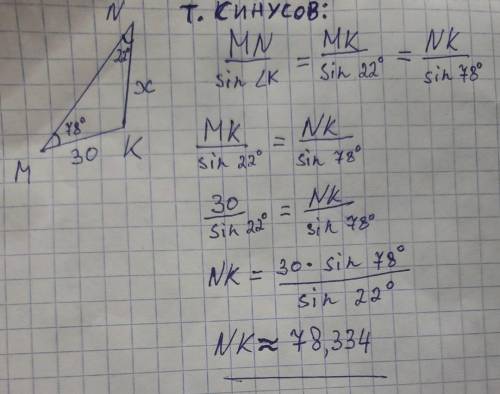 т. синусов:
N
22°
x
78°
30
K
M
MN/sin ∠K = MK/sin 22° = NK/sin 78°
MK/sin 22° = NK/sin 78°
30/sin 22° = NK/sin 78°
NK = 30 · sin 78°/sin 22°
NK ≈ 78,334